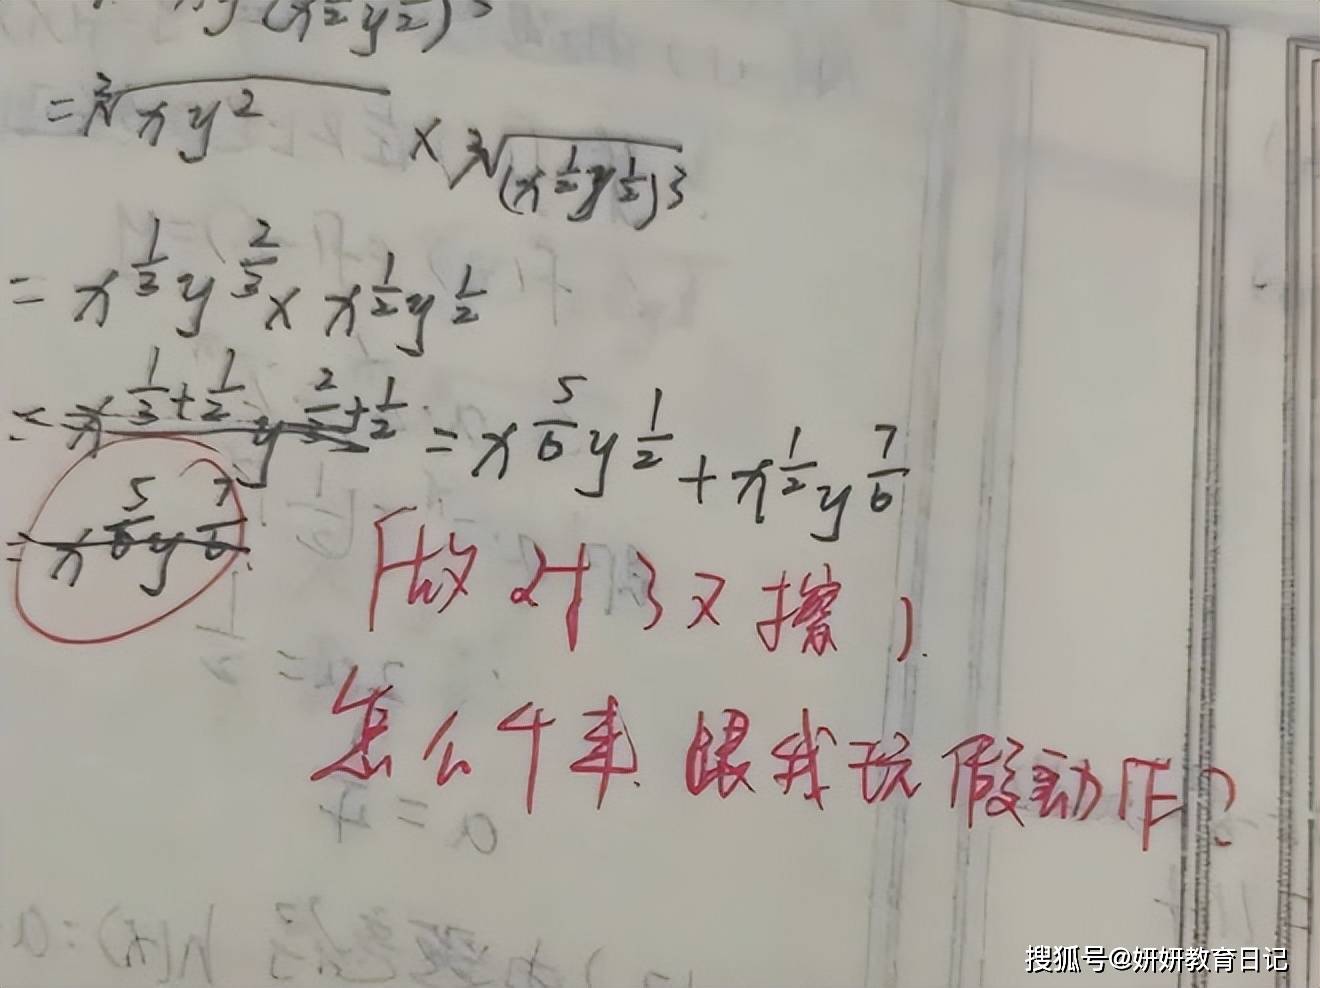 (x^{\frac{1}{2}}y^{\frac{1}{2}})^3
=\sqrt[3]{xy^2} × \sqrt[3]{(x^{\frac{1}{2}}y^{\frac{1}{2}})^3}
=x^{\frac{1}{3}}y^{\frac{2}{3}}×x^{\frac{1}{2}}y^{\frac{1}{2}}
=x^{\frac{1}{3}+\frac{1}{2}}y^{\frac{2}{3}+\frac{1}{2}}=x^{\frac{5}{6}}y^{\frac{1}{2}}+x^{\frac{1}{2}}y^{\frac{7}{6}}
=x^{\frac{5}{6}}y^{\frac{7}{6}}
做对了又擦,
怎么午来跟我玩假动作?
搜狐号@妍妍教育日记